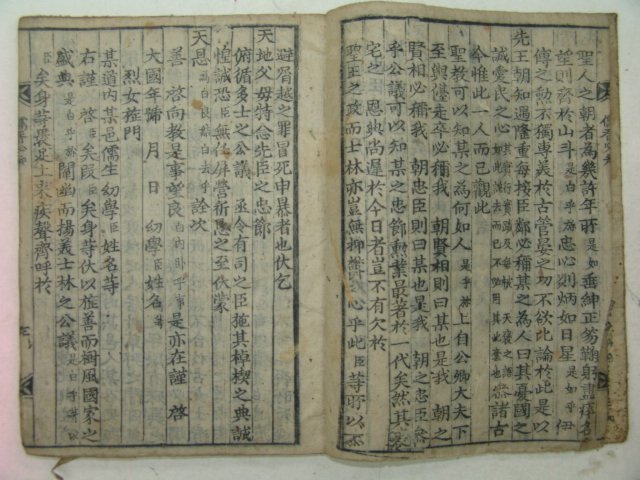 聖人之朝者為幾許年所是如垂紳正笏鞠躬盡瘁名
望則齊於山斗是白乎㫆忠心則炳如日星是如乎伊
傅之勳不獨專美於古管晏之功不欲比論於此是以
先王朝知遇隆重每接臣鄰必稱某之為人曰其憂國之
誠愛民之心
今惟此一人而已觀此
聖教可以知某之為何如人是乎㫆上自公卿大夫下
至輿儓走卒必稱我 朝賢相則曰某也是我 朝之
賢相必稱我 朝忠臣則曰某也是我 朝之忠臣
乎公議可以知某之忠節勳業最著於一代矣然其
宅之 恩典尚遲於今日者豈不有欠於
聖王之政而士林亦豈無抑鬱之心乎此臣等所以不
避屑越之罪冒死申暴者也伏乞
天地父母特念先臣之忠節
俯循多士之公議亟令有司之臣施其棹楔之典誠
惶誠恐臣無任屏營祈恳之至伏蒙
天恩為白良結白去乎詮次
善 啓向教是事望良白內臥乎事是亦在謹 啓
大國年號 月 日 幼學臣姓名等
烈女旌門
某道內某邑儒生幼學臣姓名等
右謹 啓臣矣段臣矣身等伏以旌善而樹風國家之
盛典是白乎㫆闡幽而揚義士林之公議是白乎所
臣矣身等累足上來疾聲齊呼於